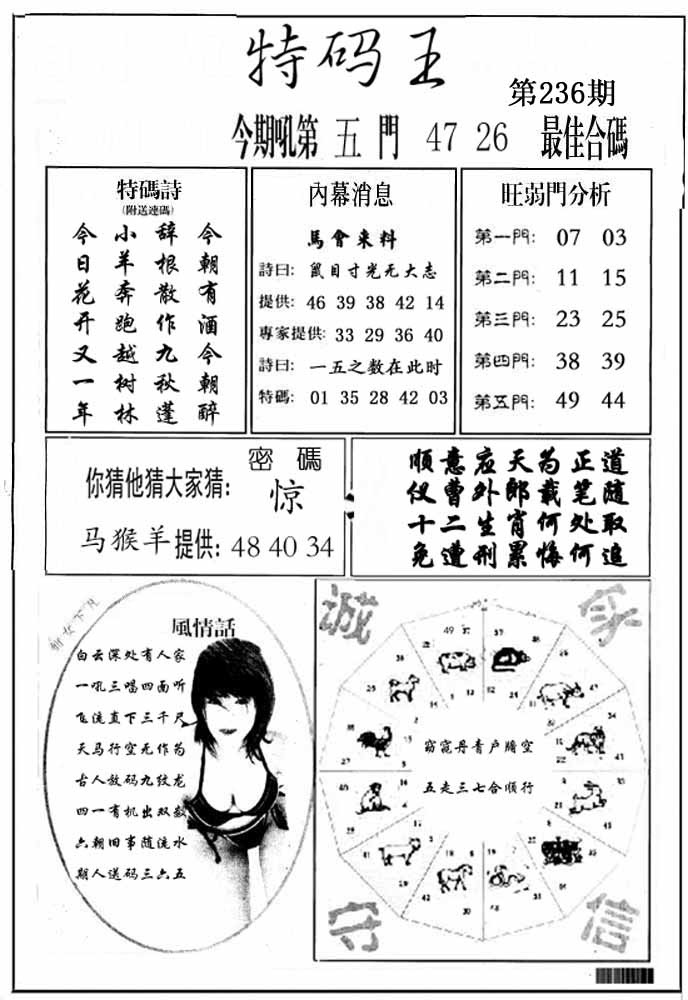 特码王
第236期
今期吼第 五 門 47 26 最佳合碼
特碼詩
(附送連碼)
今朝有酒今朝醉
辞根散作九秋蓬
小羊奔跑越树林
今日花开又一年
內幕消息
馬會来料
詩曰: 鼠目寸光无大志
提供: 46 39 38 42 14
專家提供: 33 29 36 40
詩曰: 一五之数在此时
特碼: 01 35 28 42 03
旺弱門分析
第一門: 07 03
第二門: 11 15
第三門: 23 25
第四門: 38 39
第五門: 49 44
密碼
你猜他猜大家猜: 惊
马猴羊提供: 48 40 34
顺意应天为正道
仅曹外郎载笔随
十二生肖何处取
免遭刑累悔何追
仙女下凡
風情話
白云深处有人家
一吼三唱四面听
飞流直下三千尺
天马行空无作为
古人放码九纹龙
四一有机出双数
六朝旧事随流水
期人送码三六五
诚
家
守
信
窈窕丹青户牖空
五走三七合顺行
49 37